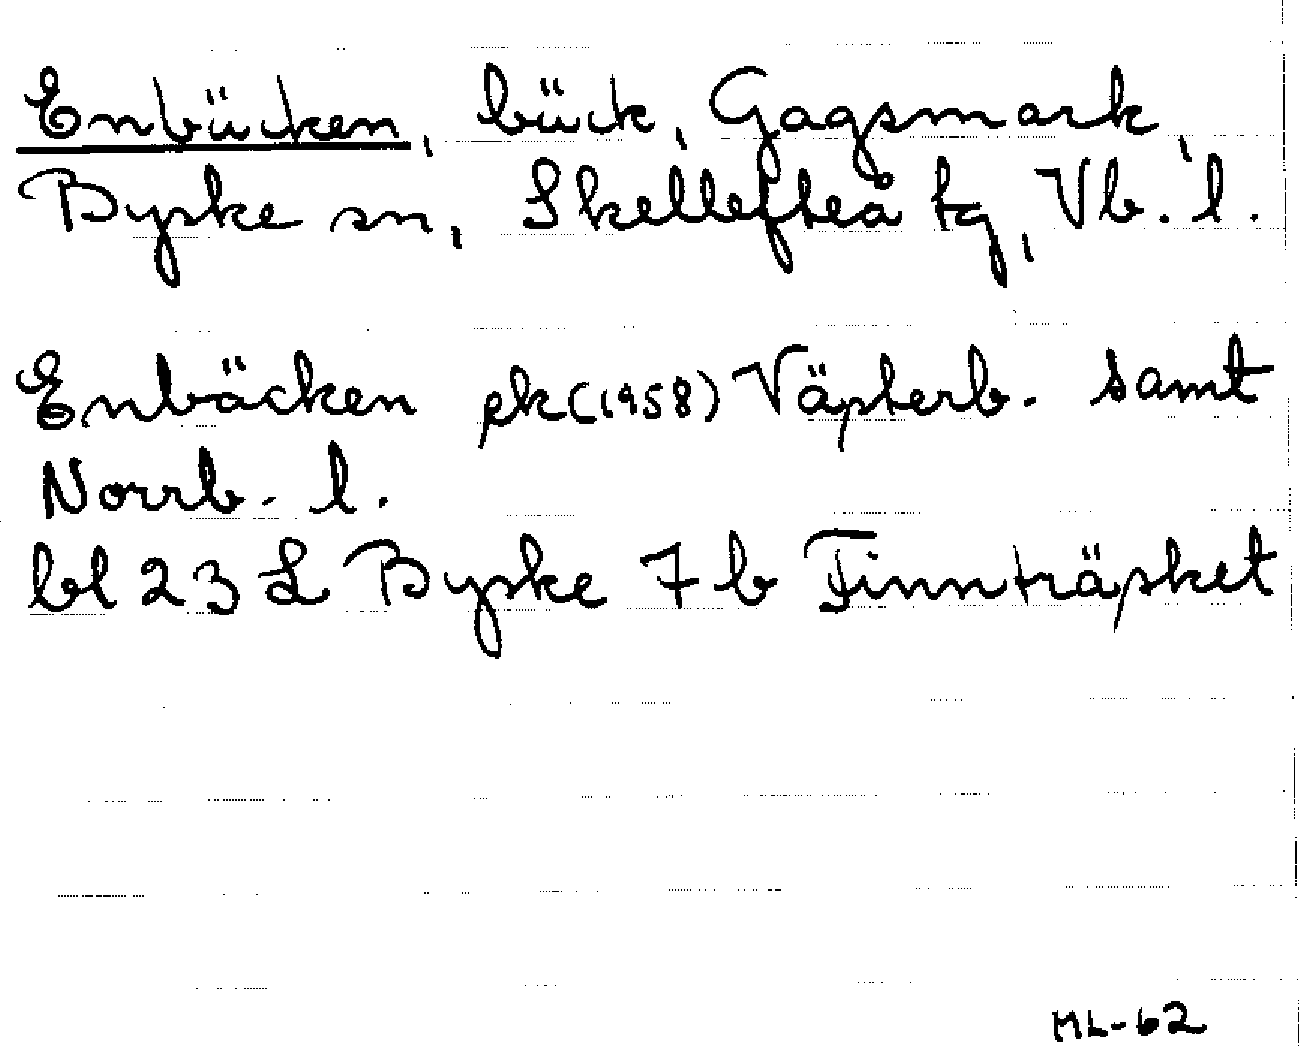 Enbäcken, bäck, Gagsmark,
Byske sn, Skellefteå tg, Vb. l.
Enbäcken ek (1958) Västerb. samt
Norrb. l.
bl 23 L Byske 7 b Finnträsket
ML-62